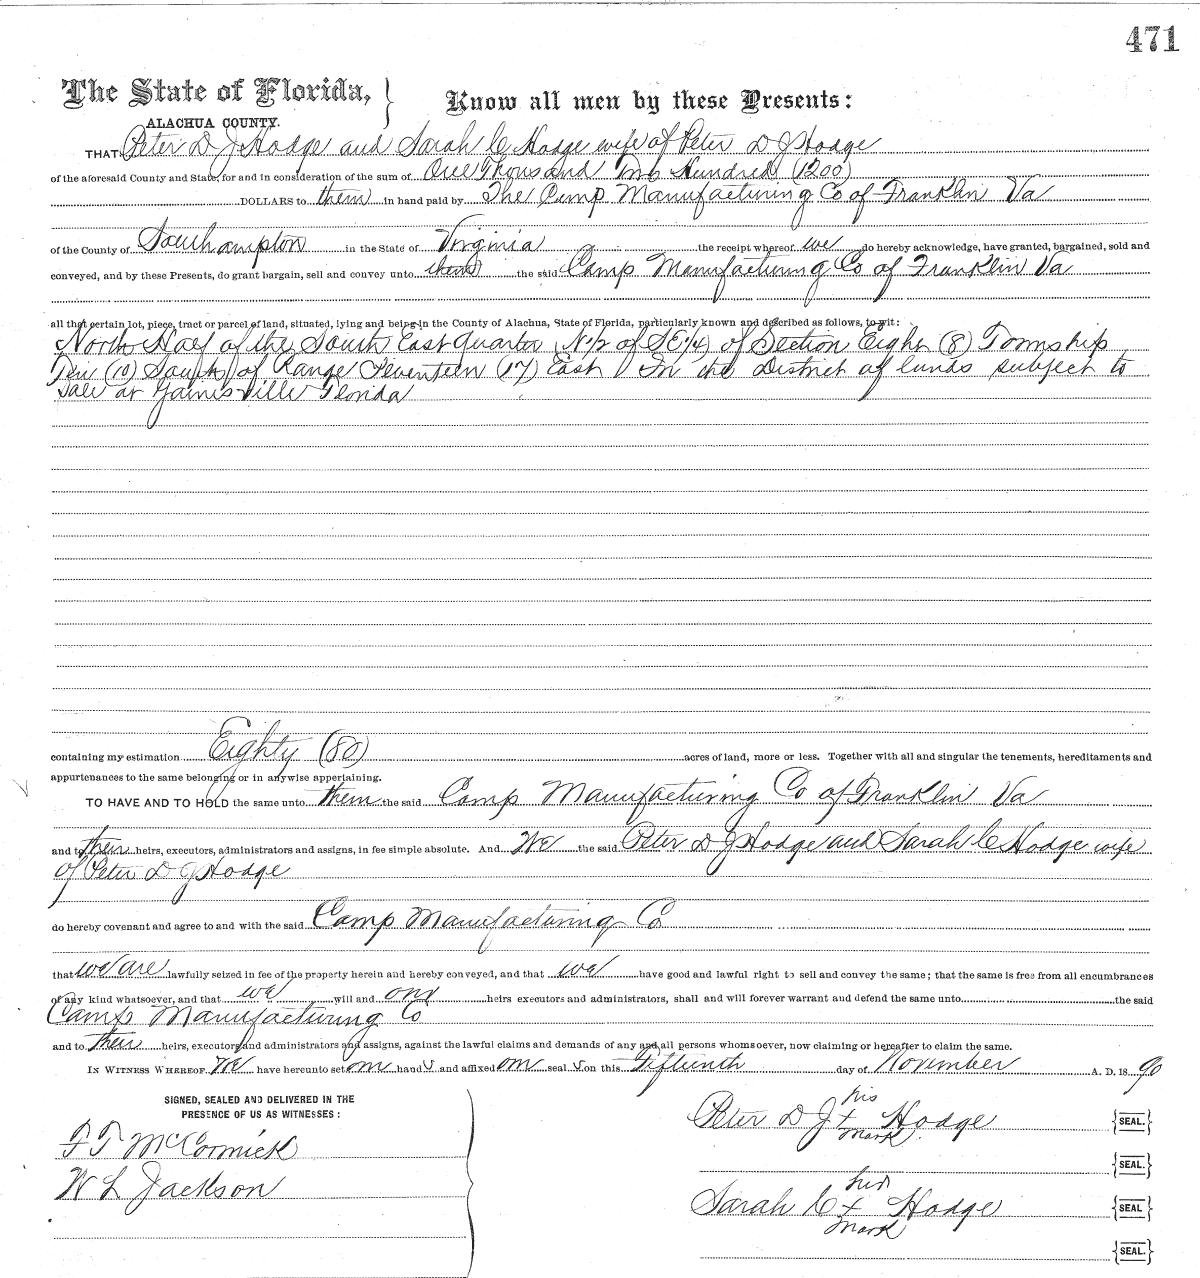 471
The State of Florida, } Know all men by these Presents:
ALACHUA COUNTY.
THAT Peter D J Hodge and Sarah C Hodge wife of Peter D J Hodge
of the aforesaid County and State, for and in consideration of the sum of One Thousand Two Hundred (1200)
DOLLARS to them in hand paid by The Camp Manufacturing Co of Franklin Va
of the County of Southampton in the State of Virginia the receipt whereof we do hereby acknowledge, have granted, bargained, sold and
conveyed, and by these Presents, do grant bargain, sell and convey unto them the said Camp Manufacturing Co of Franklin Va
all that certain lot, piece, tract or parcel of land, situated, lying and being in the County of Alachua, State of Florida, particularly known and described as follows, to wit:
North Half of the South East Quarter (N 1/2 of SE 1/4) of Section Eight (8) Township
Ten (10) South of Range Seventeen (17) East In the District of lands subject to
sale at Gainisville Florida
containing my estimation Eighty (80) acres of land, more or less. Together with all and singular the tenements, hereditaments and
appurtenances to the same belonging or in anywise appertaining.
TO HAVE AND TO HOLD the same unto them the said Camp Manufacturing Co of Franklin Va
and to their heirs, executors, administrators and assigns, in fee simple absolute. And We the said Peter D J Hodge and Sarah C Hodge wife
of Peter D J Hodge
do hereby covenant and agree to and with the said Camp Manufacturing Co
that we are lawfully seized in fee of the property herein and hereby conveyed, and that we have good and lawful right to sell and convey the same; that the same is free from all encumbrances
of any kind whatsoever, and that we will and our heirs executors and administrators, shall and will forever warrant and defend the same unto the said
Camp Manufacturing Co
and to their heirs, executors and administrators and assigns, against the lawful claims and demands of any and all persons whomsoever, now claiming or hereafter to claim the same.
IN WITNESS WHEREOF We have hereunto set our hands and affixed our seal s on this Fifteenth day of November A. D. 18 90
SIGNED, SEALED AND DELIVERED IN THE
PRESENCE OF US AS WITNESSES:
F T McCormick
W L Jackson
his
Peter D J + Hodge {SEAL.}
mark
{SEAL.}
her
Sarah C + Hodge {SEAL}
mark
{SEAL.}